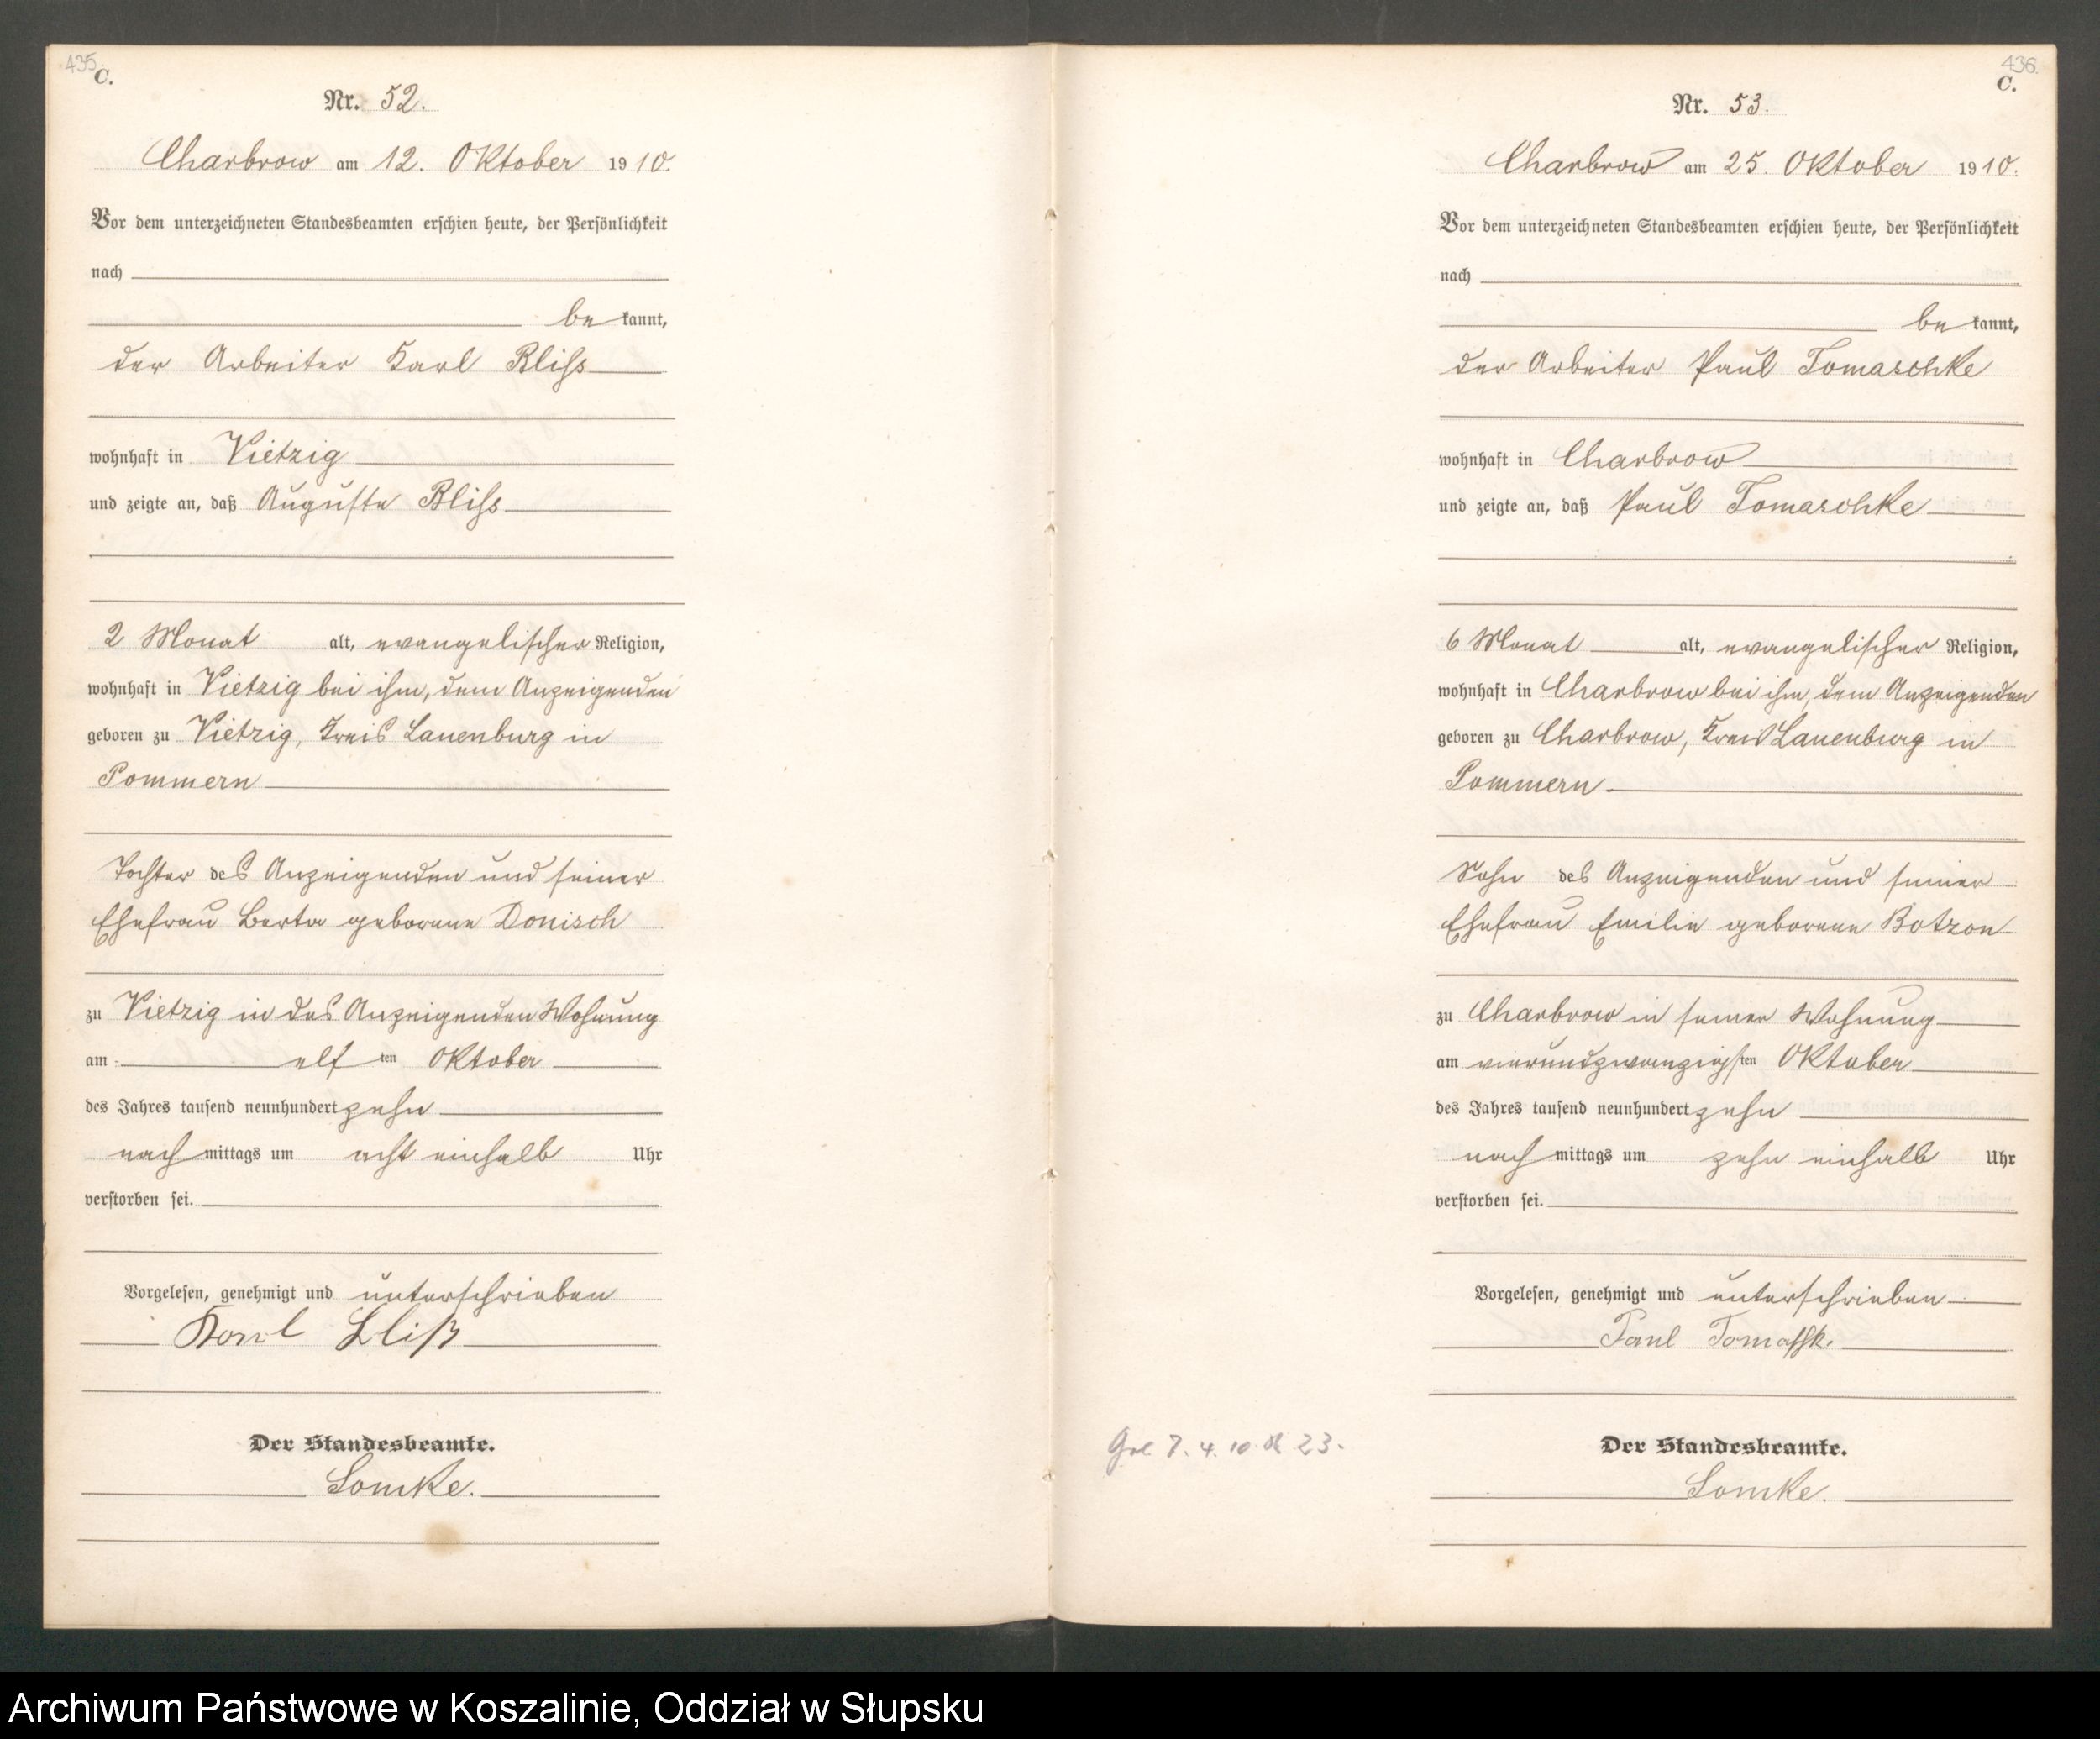 435.
C.
Nr. 52.
Charbrow am 12. Oktober 1910.
Vor dem unterzeichneten Standesbeamten erschien heute, der Persönlichkeit
nach
bekannt,
der Arbeiter Karl Bliss
wohnhaft in Vietzig
und zeigte an, daß Auguste Bliss
2 Monat alt, evangelischer Religion,
wohnhaft in Vietzig bei ihm, dem Anzeigenden
geboren zu Vietzig, Kreis Lauenburg in
Pommern
Tochter des Anzeigenden und seiner
Ehefrau Berta geborene Donisch
zu Vietzig in des Anzeigenden Wohnung
am elften Oktober
des Jahres tausend neunhundert zehn
nachmittags um acht einhalb Uhr
verstorben sei.
Vorgelesen, genehmigt und unterschrieben
Karl Bliß
Der Standesbeamte.
Lomke.
436.
C.
Nr. 53.
Charbrow am 25. Oktober 1910.
Vor dem unterzeichneten Standesbeamten erschien heute, der Persönlichkeit
nach
bekannt,
der Arbeiter Paul Tomaschke
wohnhaft in Charbrow
und zeigte an, daß Paul Tomaschke
6 Monat alt, evangelischer Religion,
wohnhaft in Charbrow bei ihm, dem Anzeigenden
geboren zu Charbrow, Kreis Lauenburg in
Pommern
Sohn des Anzeigenden und seiner
Ehefrau Emilie geborene Botzon
zu Charbrow in seiner Wohnung
am vierundzwanzigsten Oktober
des Jahres tausend neunhundert zehn
nachmittags um zehn einhalb Uhr
verstorben sei.
Vorgelesen, genehmigt und unterschrieben
Paul
7. 4. 10 23.
Der Standesbeamte.
Lomke.
Archiwum Państwowe w Koszalinie, Oddział w Słupsku